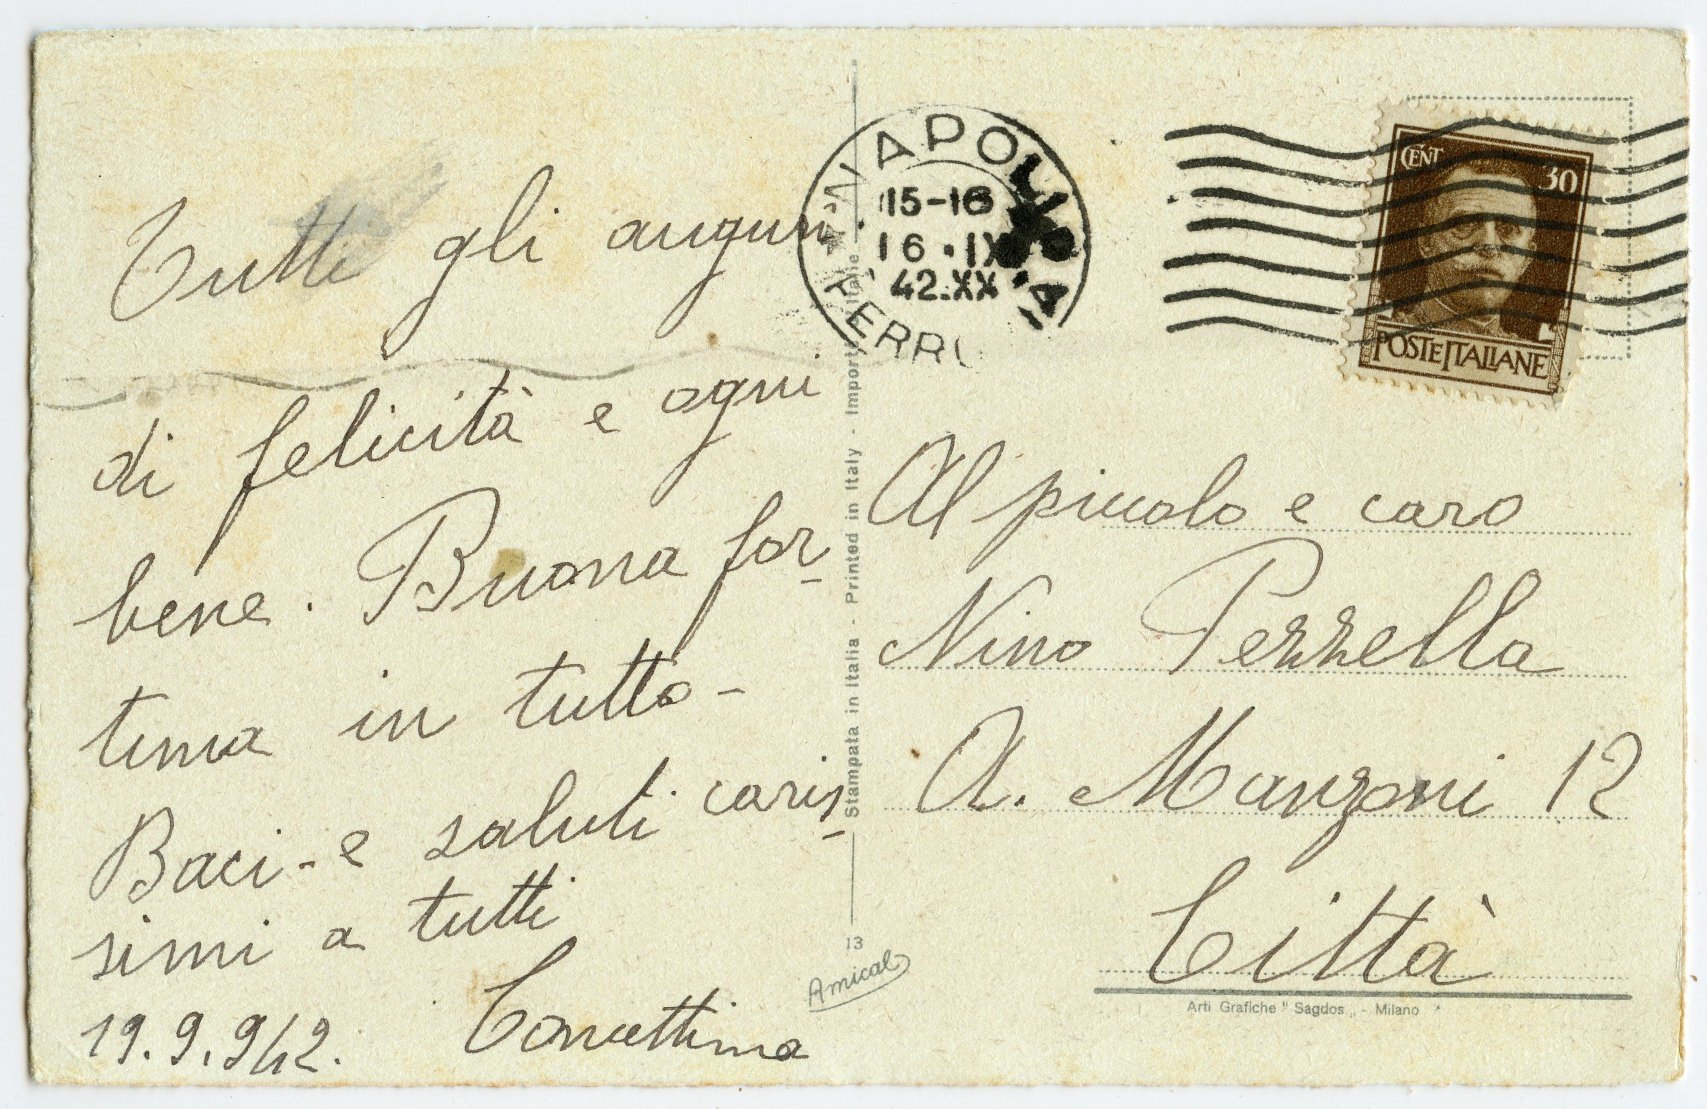 Tutti gli auguri
di felicità e ogni
bene. Buona for-
tuna in tutto-
Baci - e saluti caris-
simi a tutti
19.9.942. Concettina
NAPOLI
15-16
16.IX
42.XX
FERR
CENT 30
POSTE ITALIANE
Al piccolo e caro
Nino Pezzella
A. Manzoni 12
Città
Stampata in Italia - Printed in Italy -
13
Amical
Arti Grafiche "Sagdos" - Milano